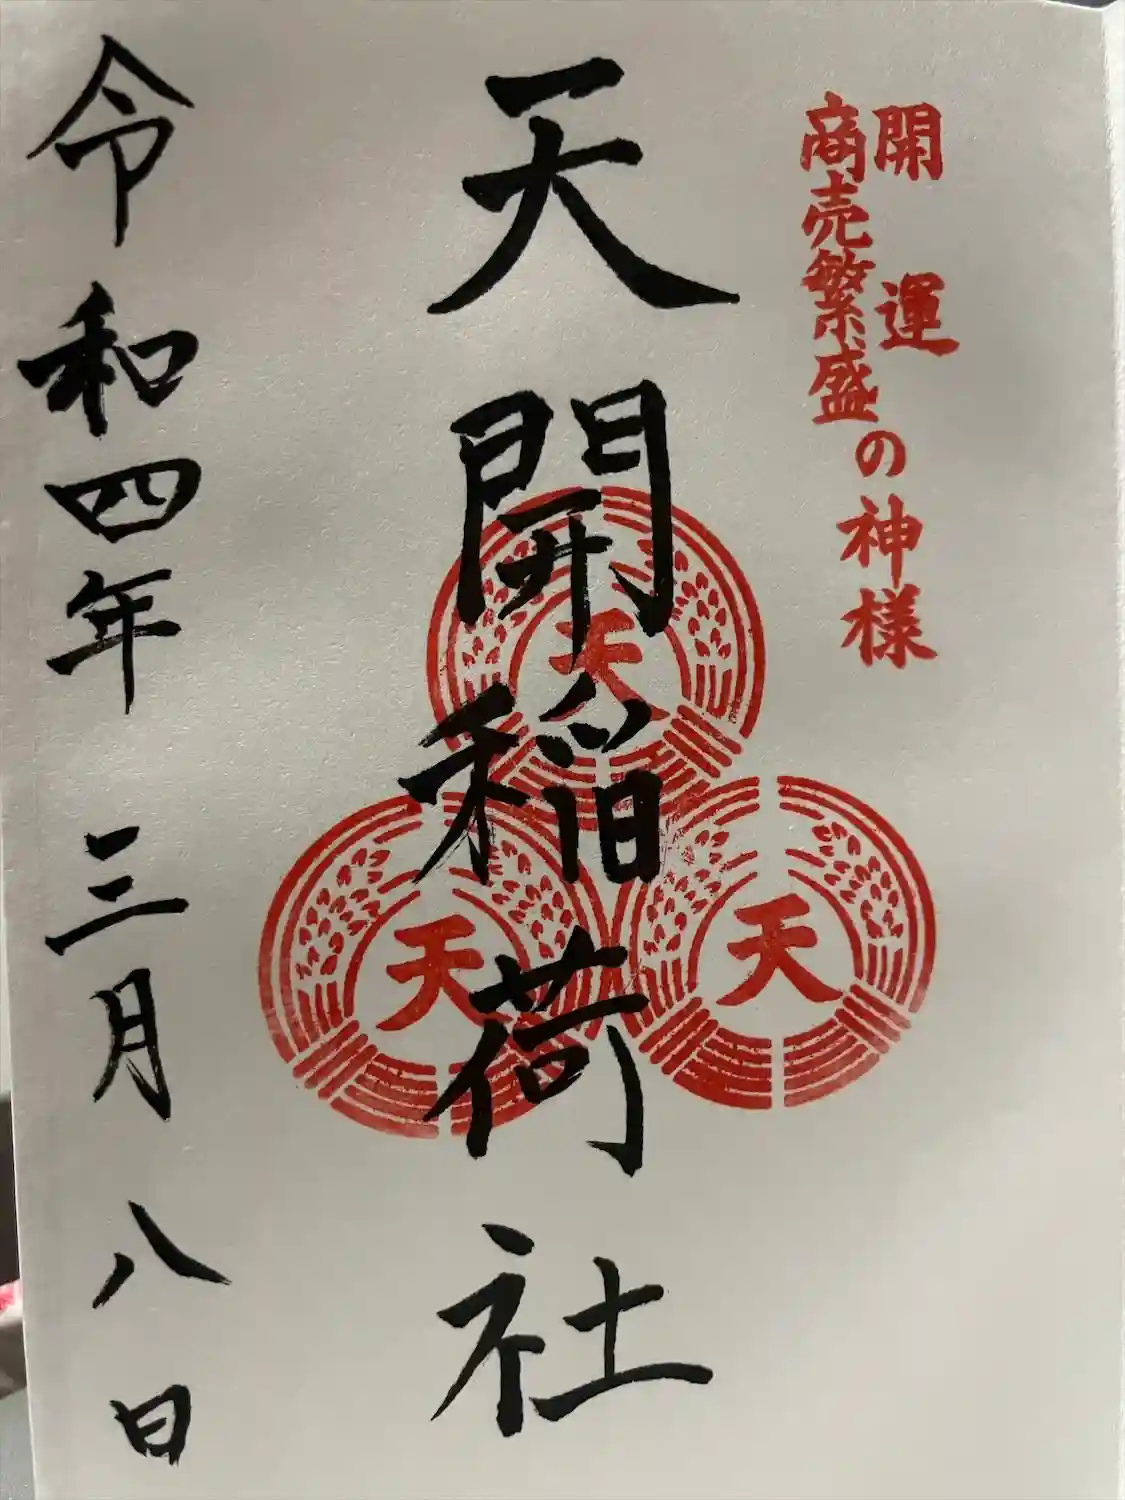 開運
商売繁盛
の神様
天開稲荷社
天
天
天
令和四年三月八日